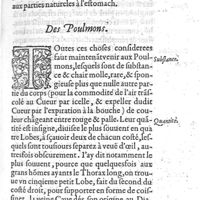 aux parties naturelles à l'estomach.
Des Poulmons.
TOutes ces choses considerees
faut maintenāt venir aux Poul-
mons, lesquels sont de substan-
ce & chair molle, rare, & spon-
gieuse plus que nulle autre par-
tie du corps (pour la commodité de l'air trās-
colé au Cueur par icelle, & expeller dudit
Cueur par l'expiration à la bouche) de cou-
leur chāgeant entre rouge & palle. Leur quā-
tité est insigne, diuisee le plus souuent en qua-
tre Lobes, à sçauoir deux de chacun costé, les-
quels sont tousiours separez a veuë d'œil, au-
tresfois obscurement. I'ay dit notamment le
plus souuent, pource que quelquesfois aux
grans hōmes ayants le Thorax long, on trou-
ue vn cinquiesme petit Lobe, fait du second
du costé droit, pour supporter en forme de coif-
Substance.
Quantité.